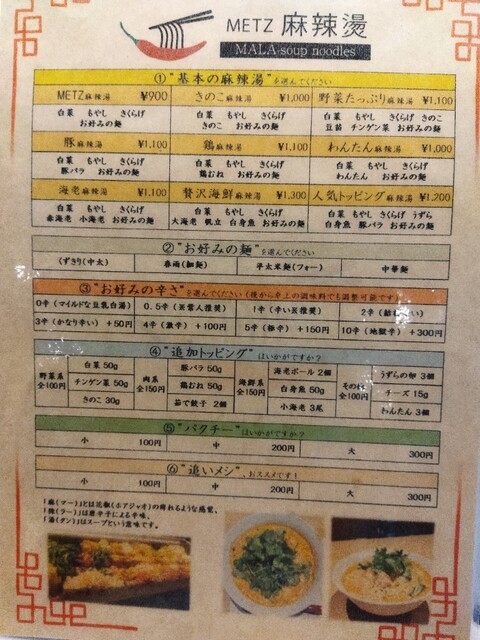 METZ 麻辣湯
MALA soup noodles
① "基本の麻辣湯" を選んでください
METZ麻辣湯 ¥900 きのこ麻辣湯 ¥1,000 野菜たっぷり麻辣湯 ¥1,100
白菜 もやし きくらげ 白菜 もやし きくらげ 白菜 もやし きくらげ きのこ
お好みの麺 きのこ お好みの麺 豆苗 チンゲン菜 お好みの麺
豚麻辣湯 ¥1,100 鶏麻辣湯 ¥1,100 わんたん麻辣湯 ¥1,000
白菜 もやし きくらげ 白菜 もやし きくらげ 白菜 もやし きくらげ
豚バラ お好みの麺 鶏むね お好みの麺 わんたん お好みの麺
海老麻辣湯 ¥1,100 贅沢海鮮麻辣湯 ¥1,300 人気トッピング麻辣湯 ¥1,200
白菜 もやし きくらげ 白菜 もやし きくらげ 白菜 もやし きくらげ うずら
赤海老 小海老 お好みの麺 大海老 帆立 白身魚 お好みの麺 白身魚 豚バラ お好みの麺
② "お好みの麺" を選んでください
くずきり(中太) 春雨(細麺) 平太米麺(フォー) 中華麺
③ "お好みの辛さ" を選んでください(後から卓上の調味料でも調整可能です)
0辛 (マイルドな豆乳白湯) 0.5辛 (※常人推奨) 1辛 (辛い※推奨) 2辛
3辛 (かなり辛い) +50円 4辛 (激辛) +100円 5辛 (極辛) +150円 10辛 (地獄辛) +300円
④ "追加トッピング" はいかがですか?
野菜系 全100円 白菜 50g チンゲン菜 50g きのこ 30g
肉系 全150円 豚バラ 50g 鶏むね 50g 茹で餃子 2個
海鮮系 全150円 海老ボール 2個 白身魚 50g 小海老 3尾
その他 全100円 うずらの卵 3個 チーズ 15g わんたん 3個
⑤ "パクチー" はいかがですか?
小 100円 中 200円 大 300円
⑥ "追いメシ" おススメです!
小 100円 中 200円 大 300円
「麻(マー)」とは花椒(ホアジャオ)の痺れるような感覚、
「辣(ラー)」は唐辛子による辛味、
「湯(タン)」はスープという意味です。